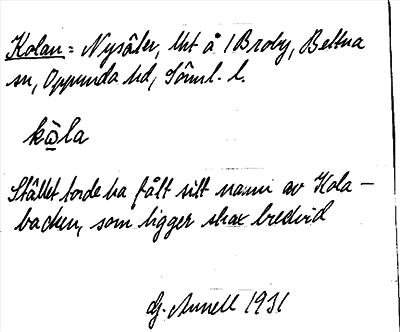 Kolan = Nysäter, lht å / Broby, Bettna
sn, Oppunda hd, Söml. l.
kåla
Stället torde ha fått sitt namn av Kola-
backen, som ligger strax bredvid
G. Annell 1931